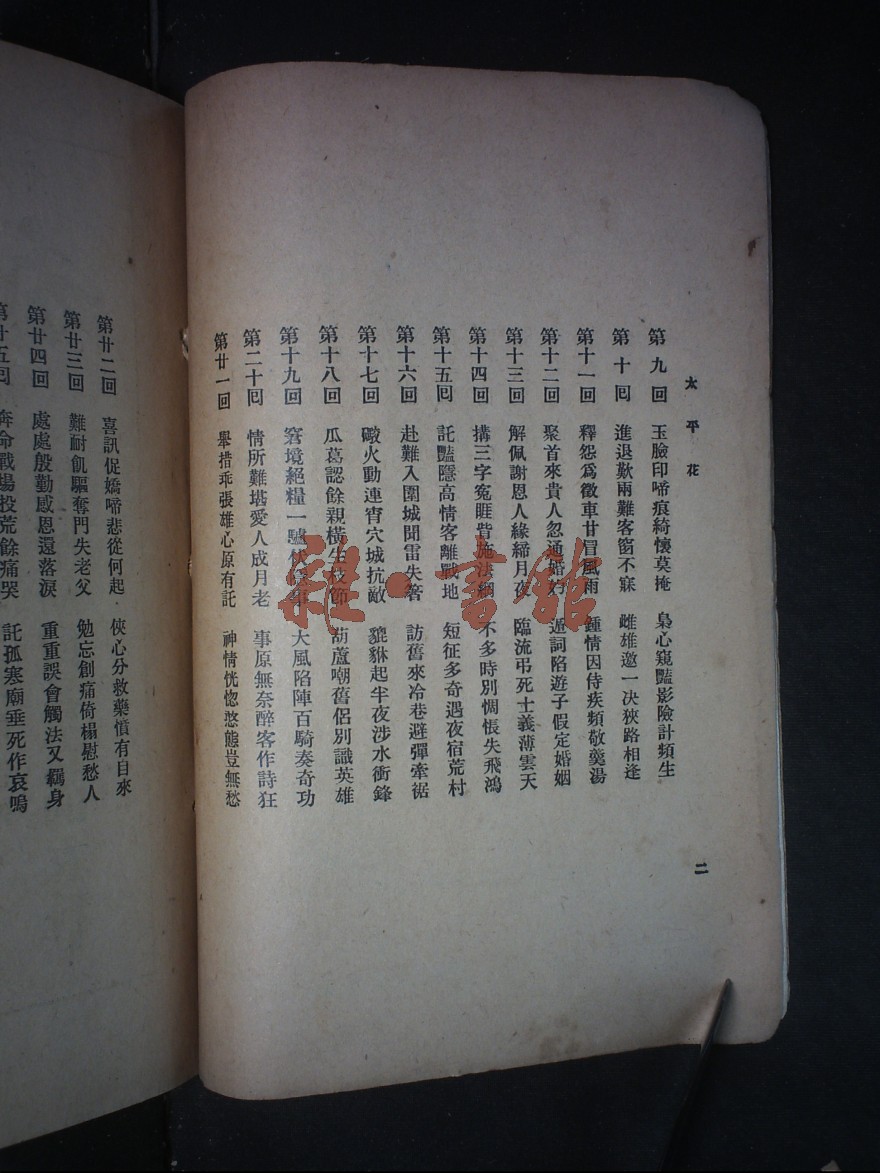 太平花
第九回 玉臉印啼痕綺懷莫掩 梟心窺豔影險計頻生
第十回 進退歎兩難客窗不寐 雌雄邀一决狹路相逢
第十一回 釋怨爲徵車甘冒風雨 鍾情因侍疾頻敬羹湯
第十二回 聚首來貴人忽通婚好 遁詞陷遊子假定婚姻
第十三回 解佩謝恩人緣締月夜 臨流弔死士義薄雲天
第十四回 搆三字冤睚眥施法網 不多時別惆悵失飛鴻
第十五回 託豔隱高情客離戰地 短征多奇遇夜宿荒村
第十六回 赴難入圍城聞雷失箸 訪舊來冷巷避彈牽裾
第十七回 礮火動連宵穴城抗敵 貔貅起半夜涉水衝鋒
第十八回 瓜葛認餘親橫生枝節 葫蘆嘲舊侶別識英雄
第十九回 窘境絕糧一驢伏 大風陷陣百騎奏奇功
第二十回 情所難堪愛人成月老 事原無奈醉客作詩狂
第廿一回 舉措乖張雄心原有託 神情恍惚憨態豈無愁
二
第廿二回 喜訊促嬌啼悲從何起 俠心分救藥憤有自來
第廿三回 難耐飢驅奪門失老父 勉忘創痛倚榻慰愁人
第廿四回 處處殷勤感恩還落淚 重重誤會觸法又羈身
第廿五回 奔命戰場投荒餘痛哭 託孤寒廟垂死作哀鳴
雜·書館